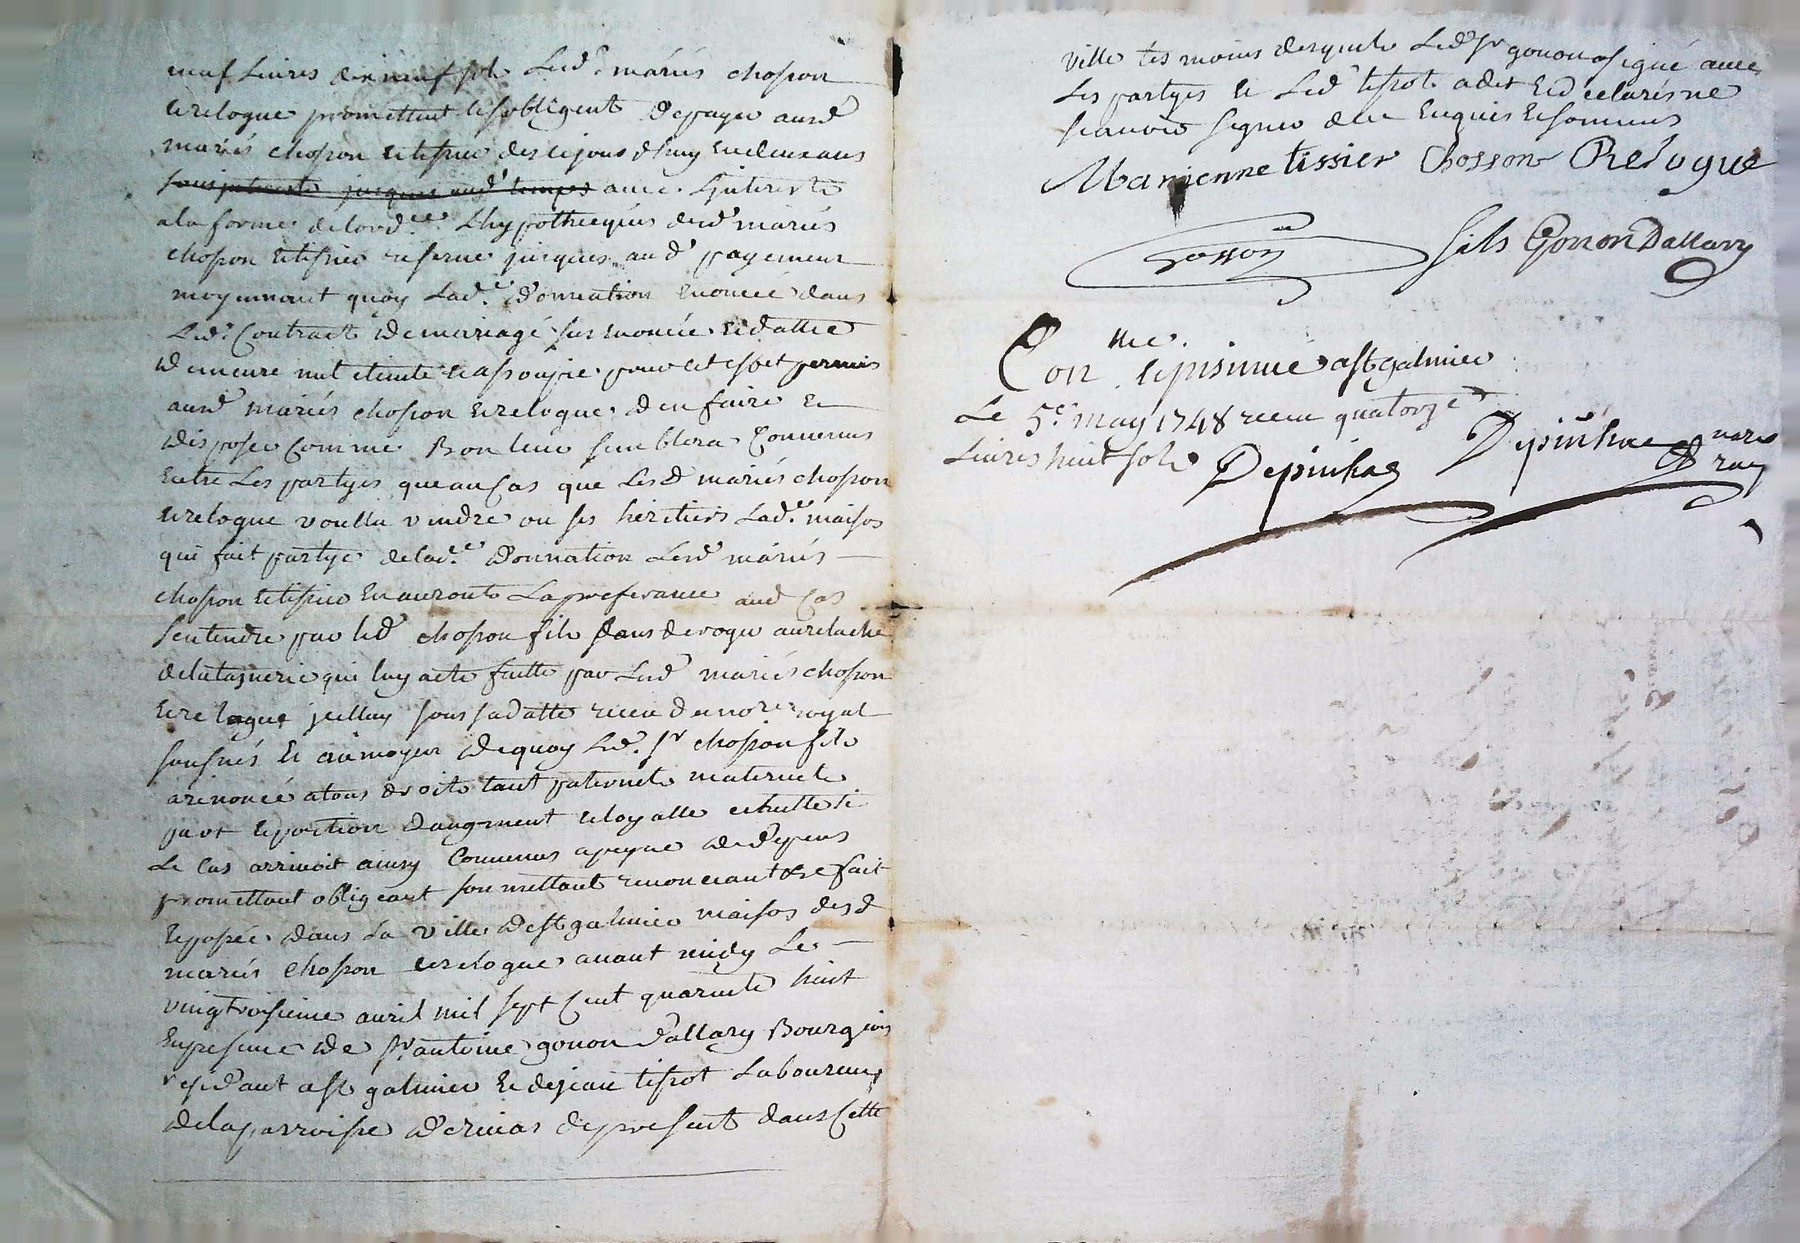 neuf Livres dix neuf sols Lesd. mariés chosson
et relogue promettent et sobligent de payer ausd
mariés chosson et tissier des ce jours dhuy en deux ans
avec Linterests
a la forme de lord.ce Lhypotheques desd mariés
chosson et tissier reserve jusques aud payement
moyennant quoy Lad.e donnation enoncée dans
Led. Contract de mariagé sus enoncée et datte
demeure nul eteinte et assoupie pour cet effet permis
ausd mariés chosson et relogue den faire et
disposer comme Bon leur semblera Convenus
entre Les partyes que au Cas que Lesd mariés chosson
et relogue voullu vendre ou ses heritiers Lad.e maison
qui fait partye de lad.e donnation Lesd mariés
chosson et tissier en auronts La preferance aud Cas
sentendre par led chosson fils sans deroger au relache
de la tagnerie qui luy a ete faitte par Lesd mariés chosson
et relogue jcelluy sous sa datte receu du no.re royal
sousnés et au moyen de quoy Led. sr chosson fils
a renoncé a tous droits tant paternels maternels
part et portion daugment et loyalle echutte si
Le cas arrivoit ainsy Convenus a peyne de depens
promettant obligeant soumettant renoncant &e fait
et passée dans La ville de st galmier maison desd
mariés chosson et relogue avant midy Le
vingtroisieme avril mil sept Cent quarente huit
en presence de sr antoine gonon dallary Bourgeois
residant a st galmier et de jean tissot Laboureur
de la parroisse daveizieux de present dans Cette
ville tesmoins desquels Led sr gonon a signé avec
Les partyes et Led tissot a dit et declarés ne
scavoir signer de ce enquis et sommés
Marienne tissier Chosson Relogue
Josson fils Gonon Dallary
Con.lle et insinué a st galmier
Le 5.e may 1748 receu quatorze
Livres huit sols Depinhac Depinhac nore
roy